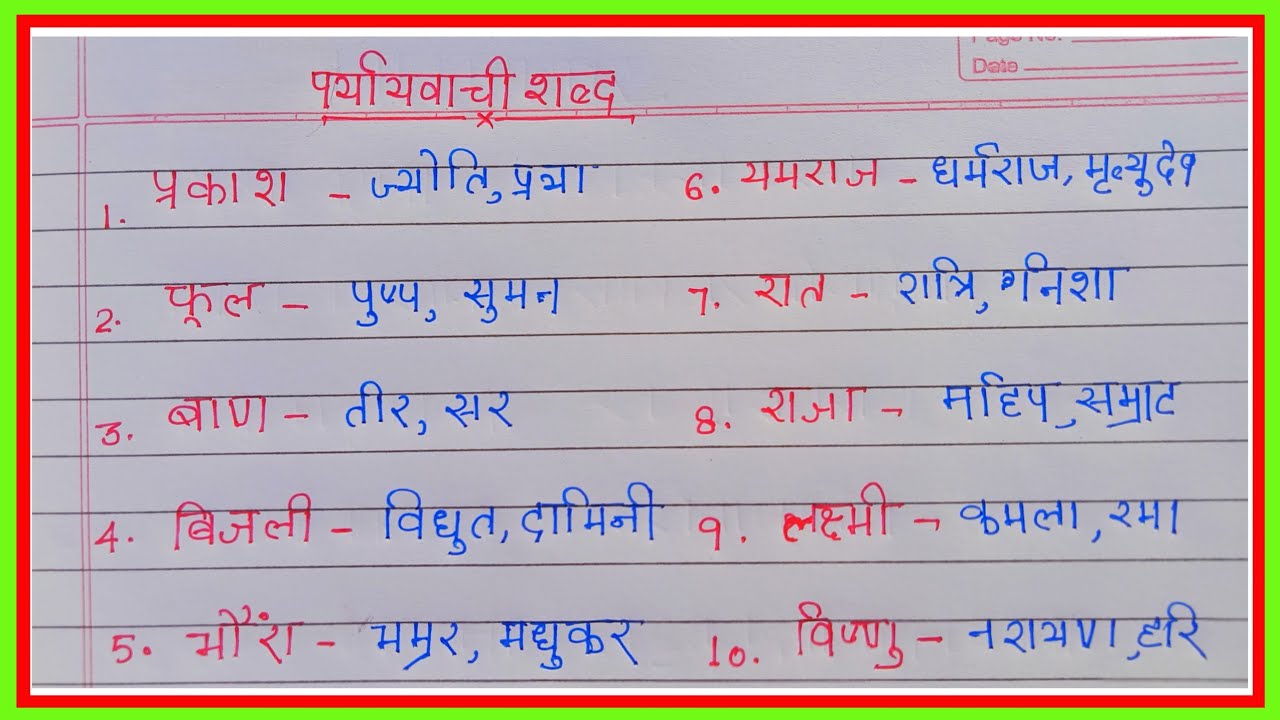 Date
पर्यायवाची शब्द
1. प्रकाश - ज्योति, प्रभा
2. फूल - पुष्प, सुमन
3. बाण - तीर, सर
4. बिजली - विधुत, दामिनी
5. भौंरा - भम्रर, मधुकर
6. यमराज - धर्मराज, मृत्युदेव
7. रात - रात्रि, निशा
8. राजा - महिप, सम्राट
9. लक्ष्मी - कमला, रमा
10. विष्णु - नरायण, हरि